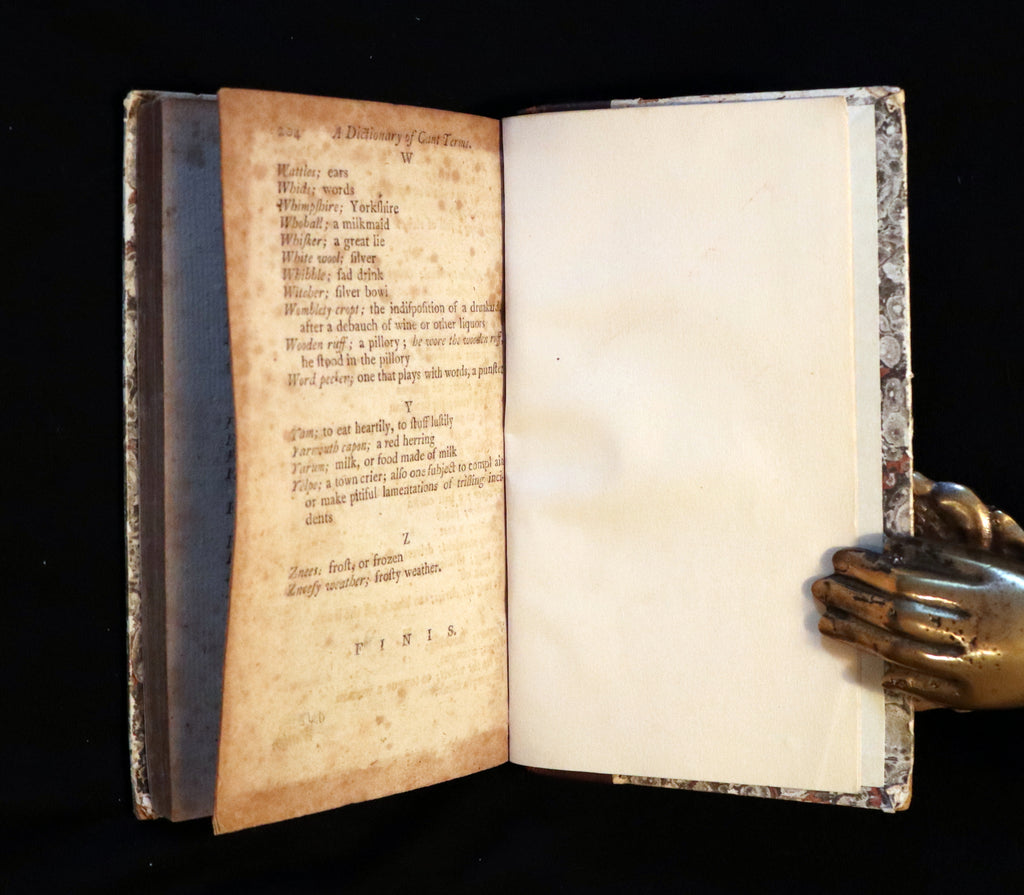 204 A Dictionary of Cant Terms.
W
Wattles; ears
Whids; words
Whimpshire; Yorkſhire
Whoball; a milkmaid
Whiſker; a great lie
White wool; ſilver
Whibble; ſad drink
Witcher; ſilver bowl
Womblety cropt; the indiſpoſition of a drunkard
after a debauch of wine or other liquors
Wooden ruff; a pillory; he wore the wooden ruff,
he ſtood in the pillory
Word pecker; one that plays with words, a punſter
Y
Yam; to eat heartily, to ſtuff luſtily
Yarmouth capon; a red herring
Yarum; milk, or food made of milk
Yelpe; a town crier; alſo one ſubject to complaia
or make pitiful lamentations of trifling inci-
dents
Z
Znees: froſt, or frozen
Zneeſy weather; froſty weather.
F I N I S.